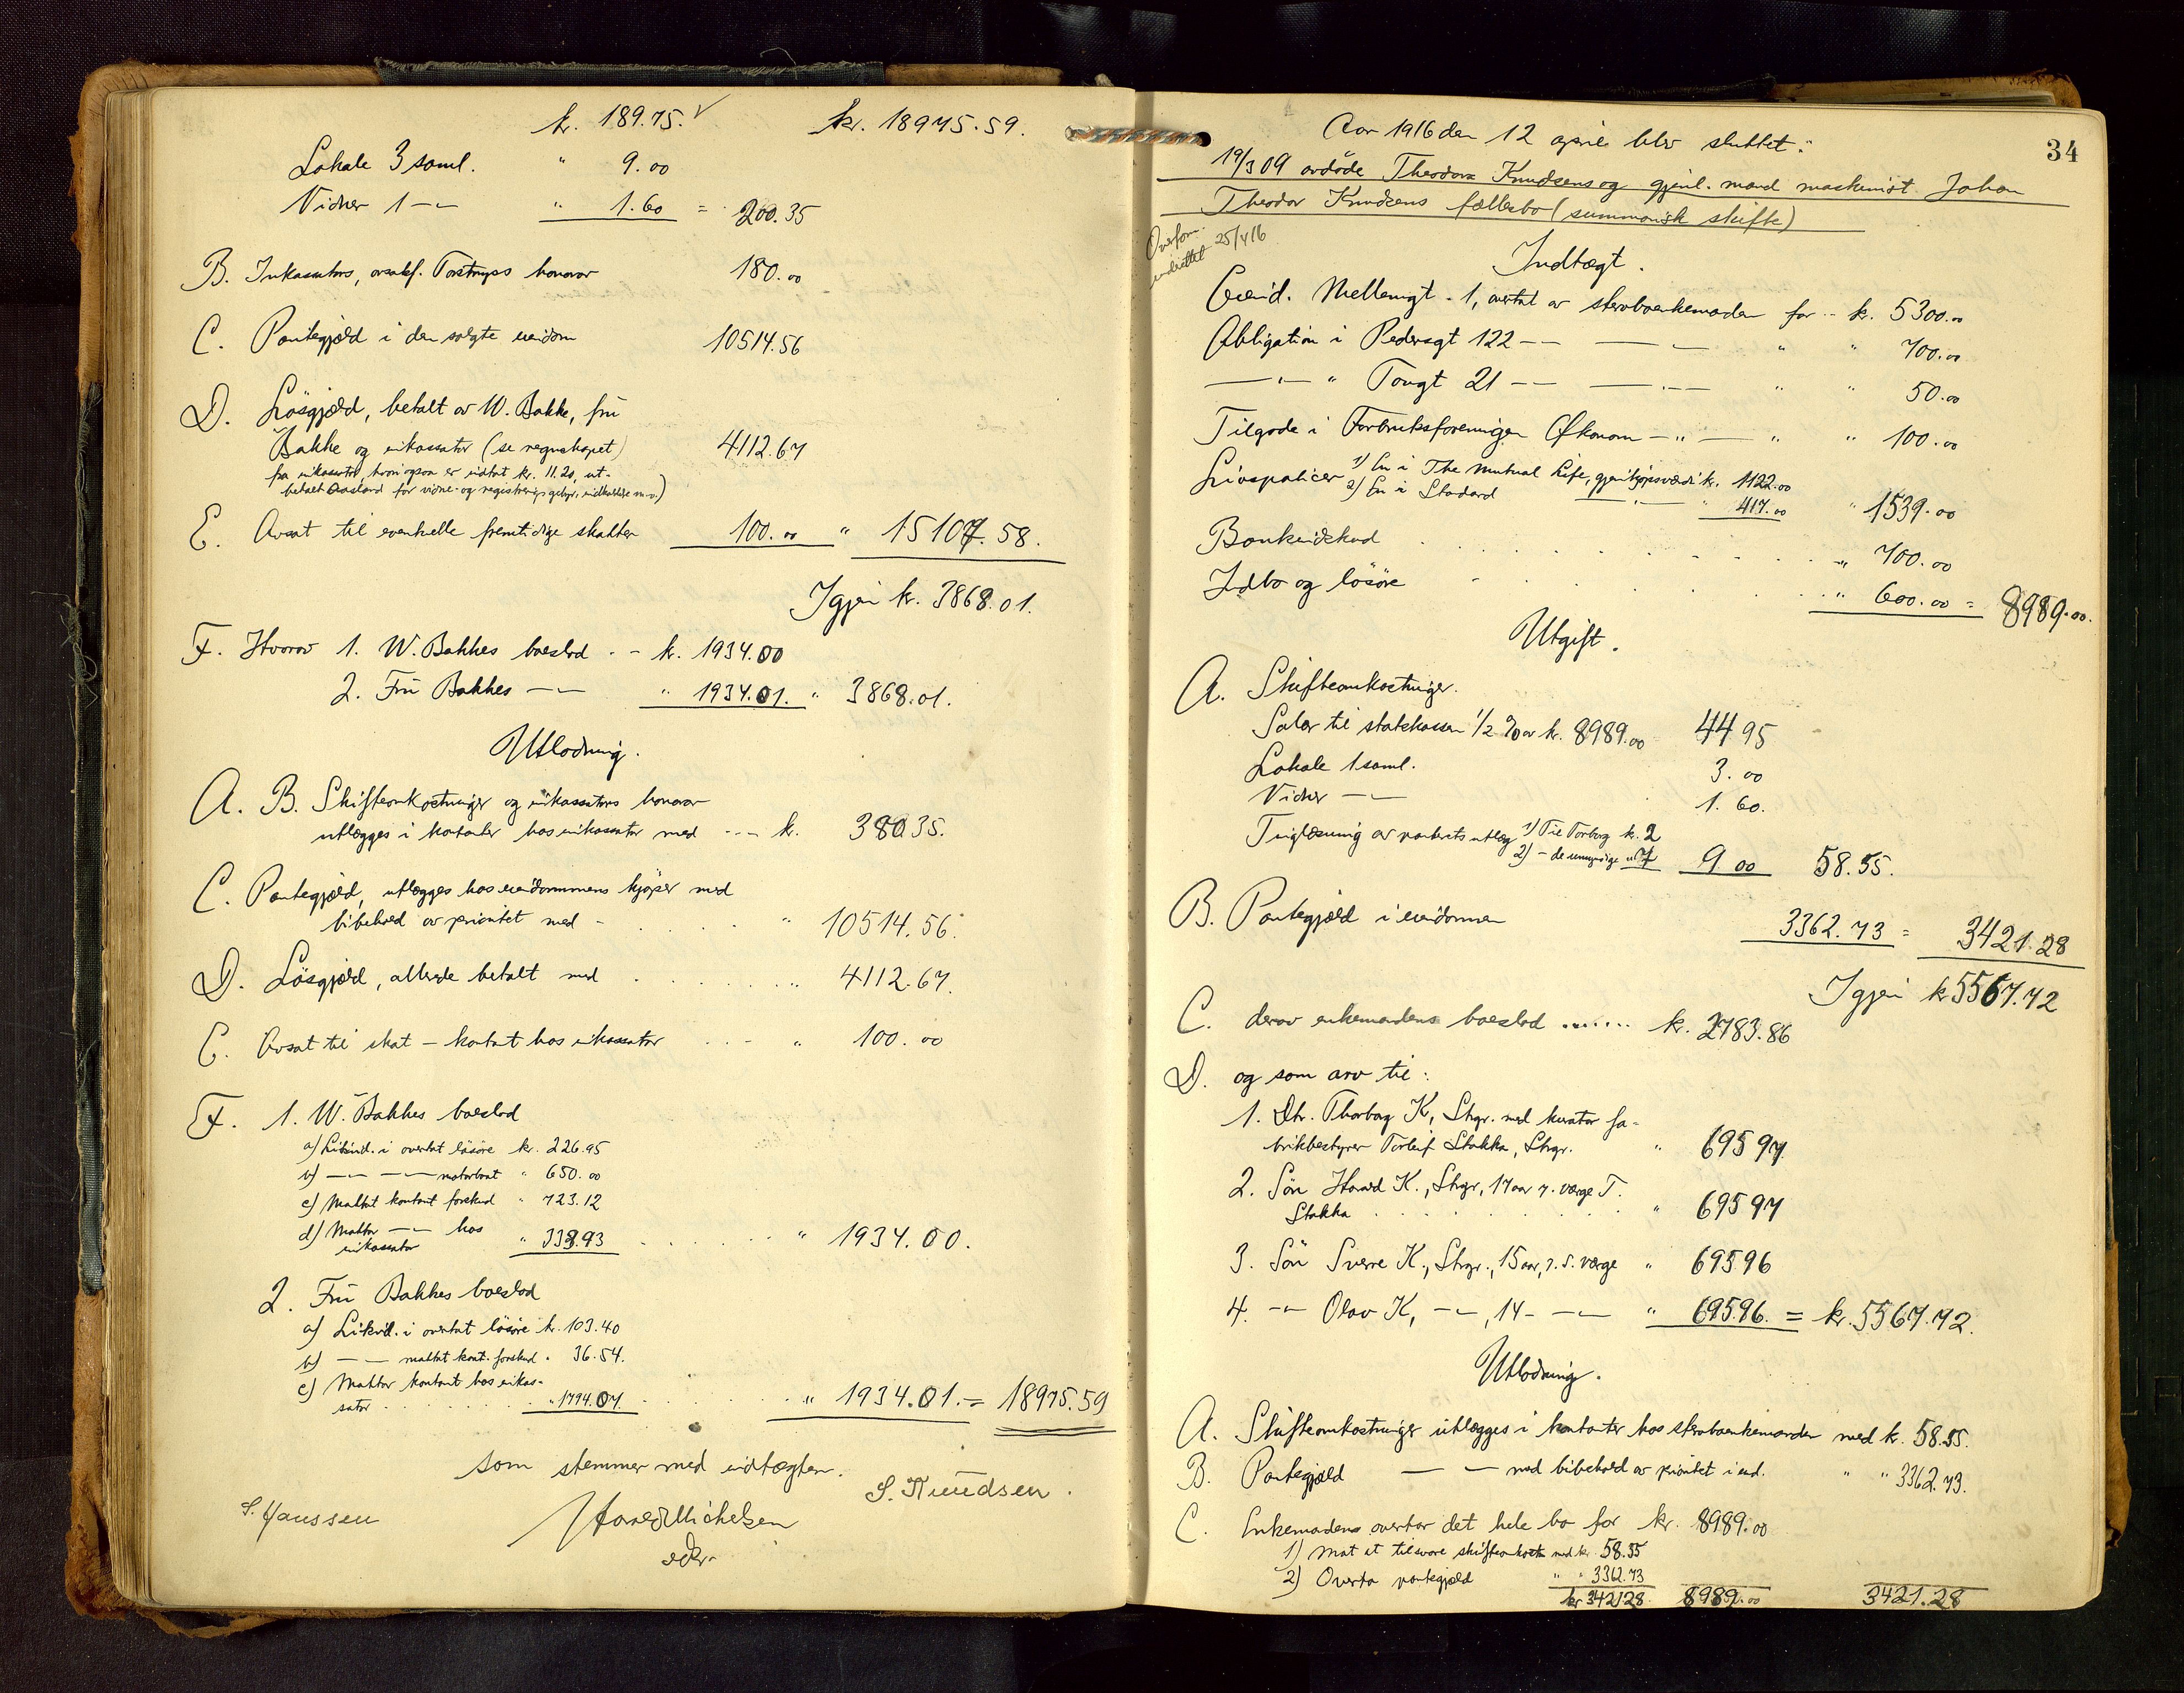 kr. 189.75. kr. 18975.59.
Lokale 3 saml. " 9.00
Vidner 1 -"- " 1.60 = 200.35
B. Inkassators, avsakf. Tastrups honorar 180.00
C. Pantegjæld i den solgte eiendom 10514.56
D. Løsgjæld, betalt av W. Bakke, fru
Bakke og inkassator (se regnskapet
fra inkassator, hvori ogsaa er indtat kr. 11.20, ut-
betalt for vidne- og registreringsgebyr, indkaldelse m.v.) 4112.67
E. Avsat til eventuelle fremtidige skatter 100.00 " 15107.58.
Igjen kr. 3868.01.
F. Hvorav 1. W. Bakkes boeslod - - kr. 1934.00
2. Fru Bakkes -"- " 1934.01. " 3868.01.
Utlodning.
A. B. Skifteomkostninger og inkassators honorar
utlægges i kontanter hos inkassator med --- kr. 380.35.
C. Pantegjæld, utlægges hos eiendommens kjøper med
bibehold av prioritet med - " 10514.56.
D. Løsgjæld, allerede betalt med " 4112.67.
E. Avsat til skat - kontant hos inkassator " 100.00
F. 1. W. Bakkes boeslod
a) Likvid. i overtat løsøre kr. 226.95
b) -"- -"- motorbaat " 650.00
c) Mottat kontant forskud " 723.12
d) Mottar -"- hos
inkassator " 333.93 " 1934.00.
2. Fru Bakkes boeslod
a) Likvid. i overtat løsøre kr. 103.40
b) -"- mottat kont. forskud " 36.54.
c) Mottar kontant hos inkas-
sator " 1794.07. " 1934.01. = 18975.59
som stemmer med indtægten.
S. Hanssen Michelsen S. Knudsen.
34
Aar 1916 den 12 april blev sluttet:
19/3 09 avdøde Theodora Knudsens og gjenl. mand maskinist Johan
Theodor Knudsens fællesbo (summarisk skifte)
Overform.
indrettet 25/4 16
Indtægt.
Eiend. Mellemgt. 1, overtat av stervboenkemanden for - kr. 5300.00
Obligation i Pedersgt 122 -"- -"- " " 700.00
-"- " Tougt 21 -"- -"- " " 50.00
Tilgode i Forbruksforeningen Økonom -"- " " 100.00
Livspolicer 1) En i The Mutual Life, gjenkjøpsværdi kr. 1122.00
2) En i Standard -"- " 417.00 " 1539.00
Bankindskud " 700.00
Indbo og løsøre " 600.00 = 8989.00.
Utgift.
A. Skifteomkostninger.
Salær til statskassen 1/2 % av kr. 8989.00 44 95
Lokale 1 saml. 3.00
Vidner -"- 1.60.
Tinglæsning av panterets utlæg 1) Til Torborg kr. 2
2) - de umyndige " 7 9 00 58.55.
B. Pantegjæld i eiendommen 3362.73 = 3421.28
Igjen kr 5567.72
C. derav enkemandens boeslod ....... kr. 2783.86
D. og som arv til:
1. Dtr. Thorborg K, Stvgr. med kurator fa-
brikbestyrer Torleif Stakka, Stvgr. " 695 97
2. Søn Harald K., Stvgr, 17 aar v. værge T.
Stakka " 695 97
3. Søn Sverre K., Stvgr., 15 aar, v. s. værge " 695 96
4. -"- Olav K, -"-, 14 - -"- " 695 96. = kr. 5567.72.
Utlodning.
A. Skifteomkostninger utlægges i kontanter hos stervboenkemanden med kr. 58.55.
B. Pantegjæld -"- -"- med bibehold av prioritet i eiend. " " 3362.73.
C. Enkemanden overtar det hele bo for kr. 8989.00
1) Mot at tilsvare skifteomkostn. med kr. 58.55
2) Overta pantegjæld " " 3362.73
kr 3421.28 8989.00 3421.28